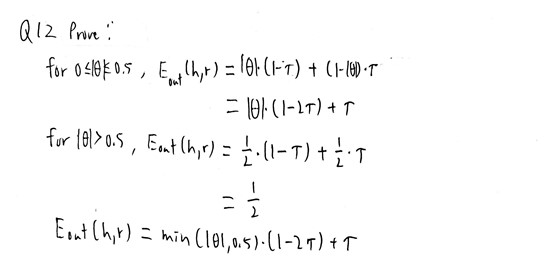 Q12 Prove:
for 0≤|θ|≤0.5, E_out(h,r) = |θ|·(1-τ) + (1-|θ|)·τ
= |θ|·(1-2τ) + τ
for |θ|>0.5, E_out(h,r) = 1/2·(1-τ) + 1/2·τ
= 1/2
E_out(h,r) = min(|θ|,0.5)·(1-2τ) + τ